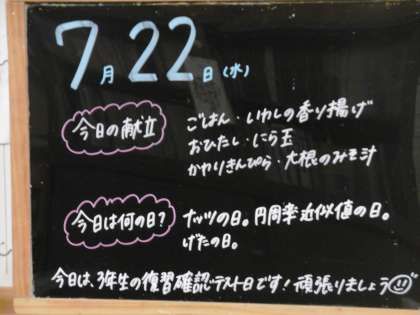 7月22日(水)
今日の献立
ごはん・いわしの香り揚げ
おひたし・にら玉
かわりきんぴら・大根のみそ汁
今日は何の日?
ナッツの日。円周率近似値の日。
げたの日。
今日は、3年生の復習確認テスト日です!頑張りましょう